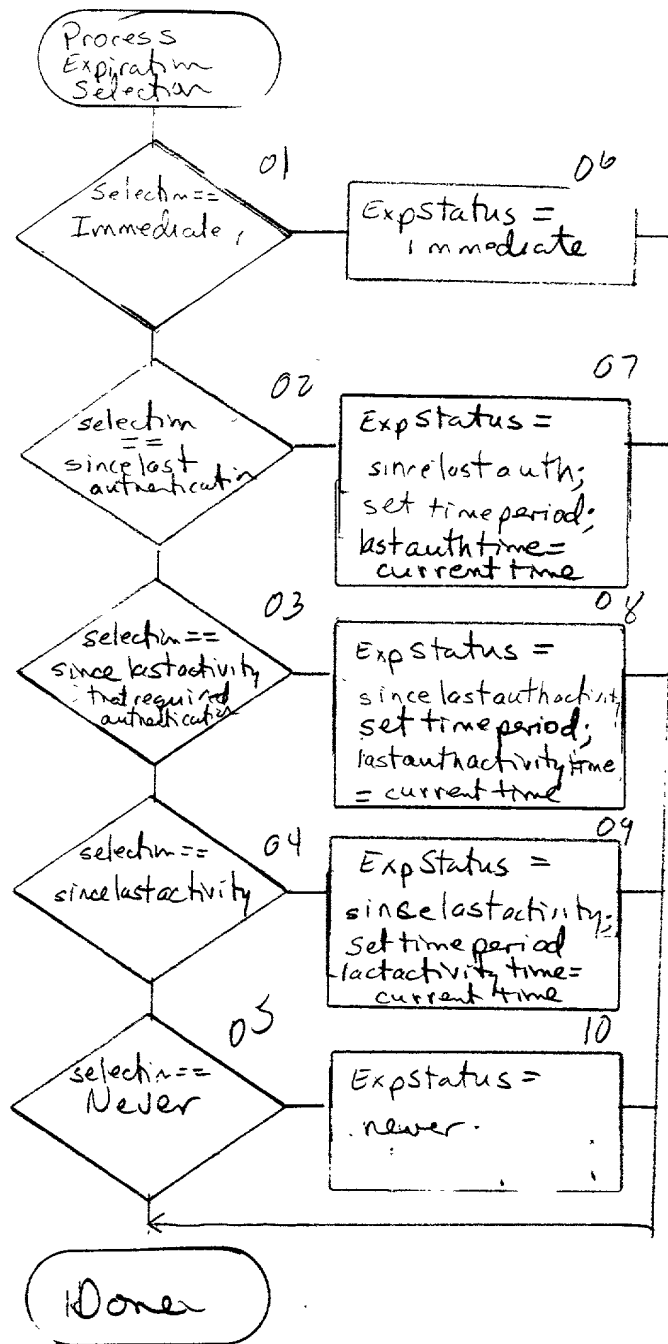 Process
Expiration
Selection
01
Selection ==
Immediate,
06
ExpStatus =
immediate
02
selection
==
since last
authentication
07
ExpStatus =
sincelastauth;
set timeperiod;
lastauthtime=
current time
03
selection ==
since lastactivity
that required
authentication
08
ExpStatus =
since lastauthactivity
set timeperiod;
lastauthactivitytime
= current time
04
selection ==
since lastactivity
09
ExpStatus =
since lastactivity;
set time period
lactactivity time=
current time
05
selection ==
Never
10
ExpStatus =
never.
Done